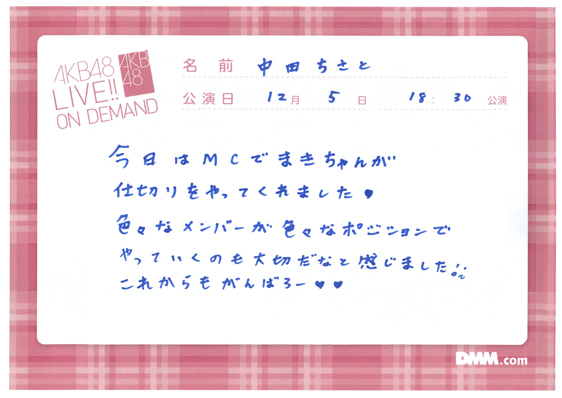 AKB48
LIVE!!
ON DEMAND
AKB
48
名前 中田ちさと
公演日 12月 5日 18:30 公演
今日はMCでまきちゃんが
仕切りをやってくれました♥
色々なメンバーが色々なポジションで
やっていくのも大切だなと感じました!!
これからもがんばろー♥♥
DMM.com